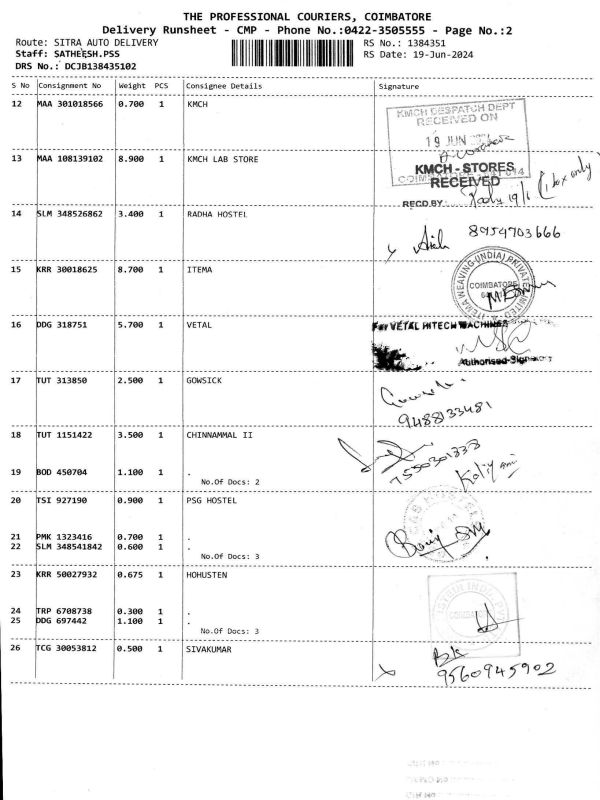 THE PROFESSIONAL COURIERS, COIMBATORE
Delivery Runsheet - CMP - Phone No.:0422-3505555 - Page No.:2
Route: SITRA AUTO DELIVERY RS No.: 1384351
Staff: SATHEESH.PSS RS Date: 19-Jun-2024
DRS No.: DCJB138435102
S No Consignment No Weight PCS Consignee Details Signature
12 MAA 301018566 0.700 1 KMCH
KMCH DESPATCH DEPT
RECEIVED ON
19 JUN
13 MAA 108139102 8.900 1 KMCH LAB STORE
KMCH - STORES
RECEIVED
RECD.BY 19/6 (1 box only)
14 SLM 348526862 3.400 1 RADHA HOSTEL
8954703666
15 KRR 30018625 8.700 1 ITEMA
ITEMA WEAVING (INDIA) PRIVATE LIMITED
COIMBATORE
16 DDG 318751 5.700 1 VETAL
For VETAL HITECH MACHINES
Authorised Signatory
17 TUT 313850 2.500 1 GOWSICK
9488133481
18 TUT 1151422 3.500 1 CHINNAMMAL II
7550301338
19 BOD 450704 1.100 1 .
No.Of Docs: 2
20 TSI 927190 0.900 1 PSG HOSTEL
21 PMK 1323416 0.700 1 .
22 SLM 348541842 0.600 1 .
No.Of Docs: 3
23 KRR 50027932 0.675 1 HOHUSTEN
24 TRP 6708738 0.300 1 .
25 DDG 697442 1.100 1 .
No.Of Docs: 3
26 TCG 30053812 0.500 1 SIVAKUMAR
9560945902